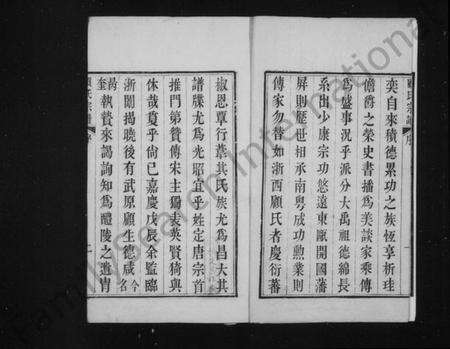 奕自來積德累功之族恆享析珪
儋爵之榮史書播爲美談家乘傳
爲盛事況乎派分大禹祖德綿長
系出少康宗功悠遠東甌開國藩
昇則歷世相承南粵成功勲業則
傳家勿替如浙西顧氏者慶衍蕃
椒恩覃行葦其氏族尤爲昌大其
譜牒尤爲光耶宜乎姓定唐宗首
推門第贊傳宋主獨表英賢猗與
休哉夐乎尚已嘉慶戊辰余監臨
浙闈揭曉後有武原顧生德咸今名
奎執贄來謁詢知爲醴陵之遺胄
顧氏宗譜 序
顧氏宗譜 序
FamilySearch International